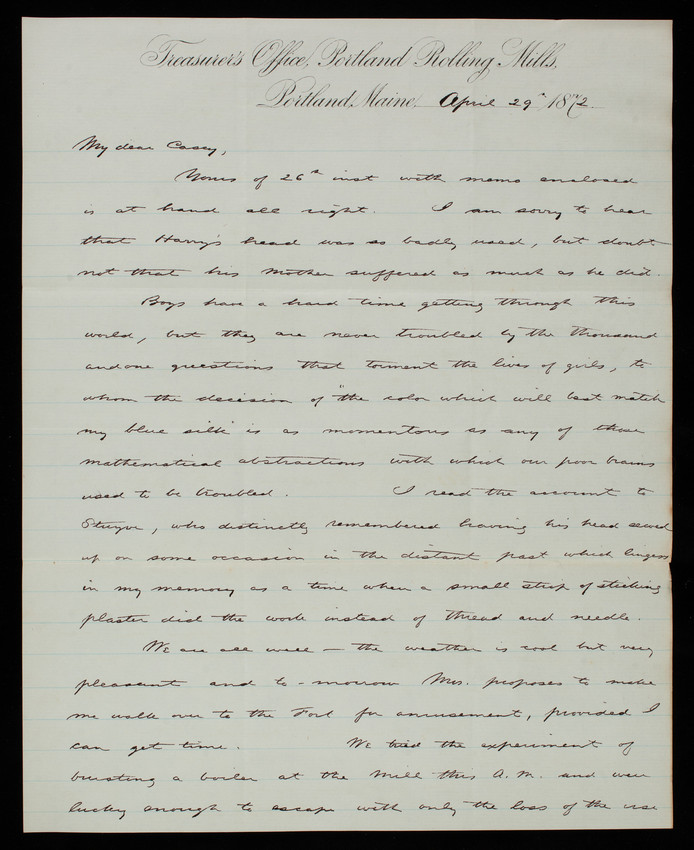 Treasurer's Office, Portland Rolling Mills,
Portland, Maine, April 29th 1872.
My dear Casey,
Yours of 26th inst with memo enclosed
is at hand all right. I am sorry to hear
that Harry's head was so badly used, but doubt
not that his mother suffered as much as he did.
Boys have a hard time getting through this
world, but they are never troubled by the thousand
and one questions that torment the lives of girls, to
whom the decision of "the color which will best match
my blue silk" is as momentous as any of those
mathematical abstractions with which our poor brains
used to be troubled. I read the account to
, who distinctly remembered having his head sewed
up on some occasion in the distant past which lingers
in my memory as a time when a small strip of sticking
plaster did the work instead of thread and needle.
We are all well - the weather is cool but very
pleasant and to-morrow Mrs. proposes to make
me walk over to the Fort for amusement, provided I
can get time. We tried the experiment of
bursting a boiler at the Mill this A.M. and were
lucky enough to escape with only the loss of the use